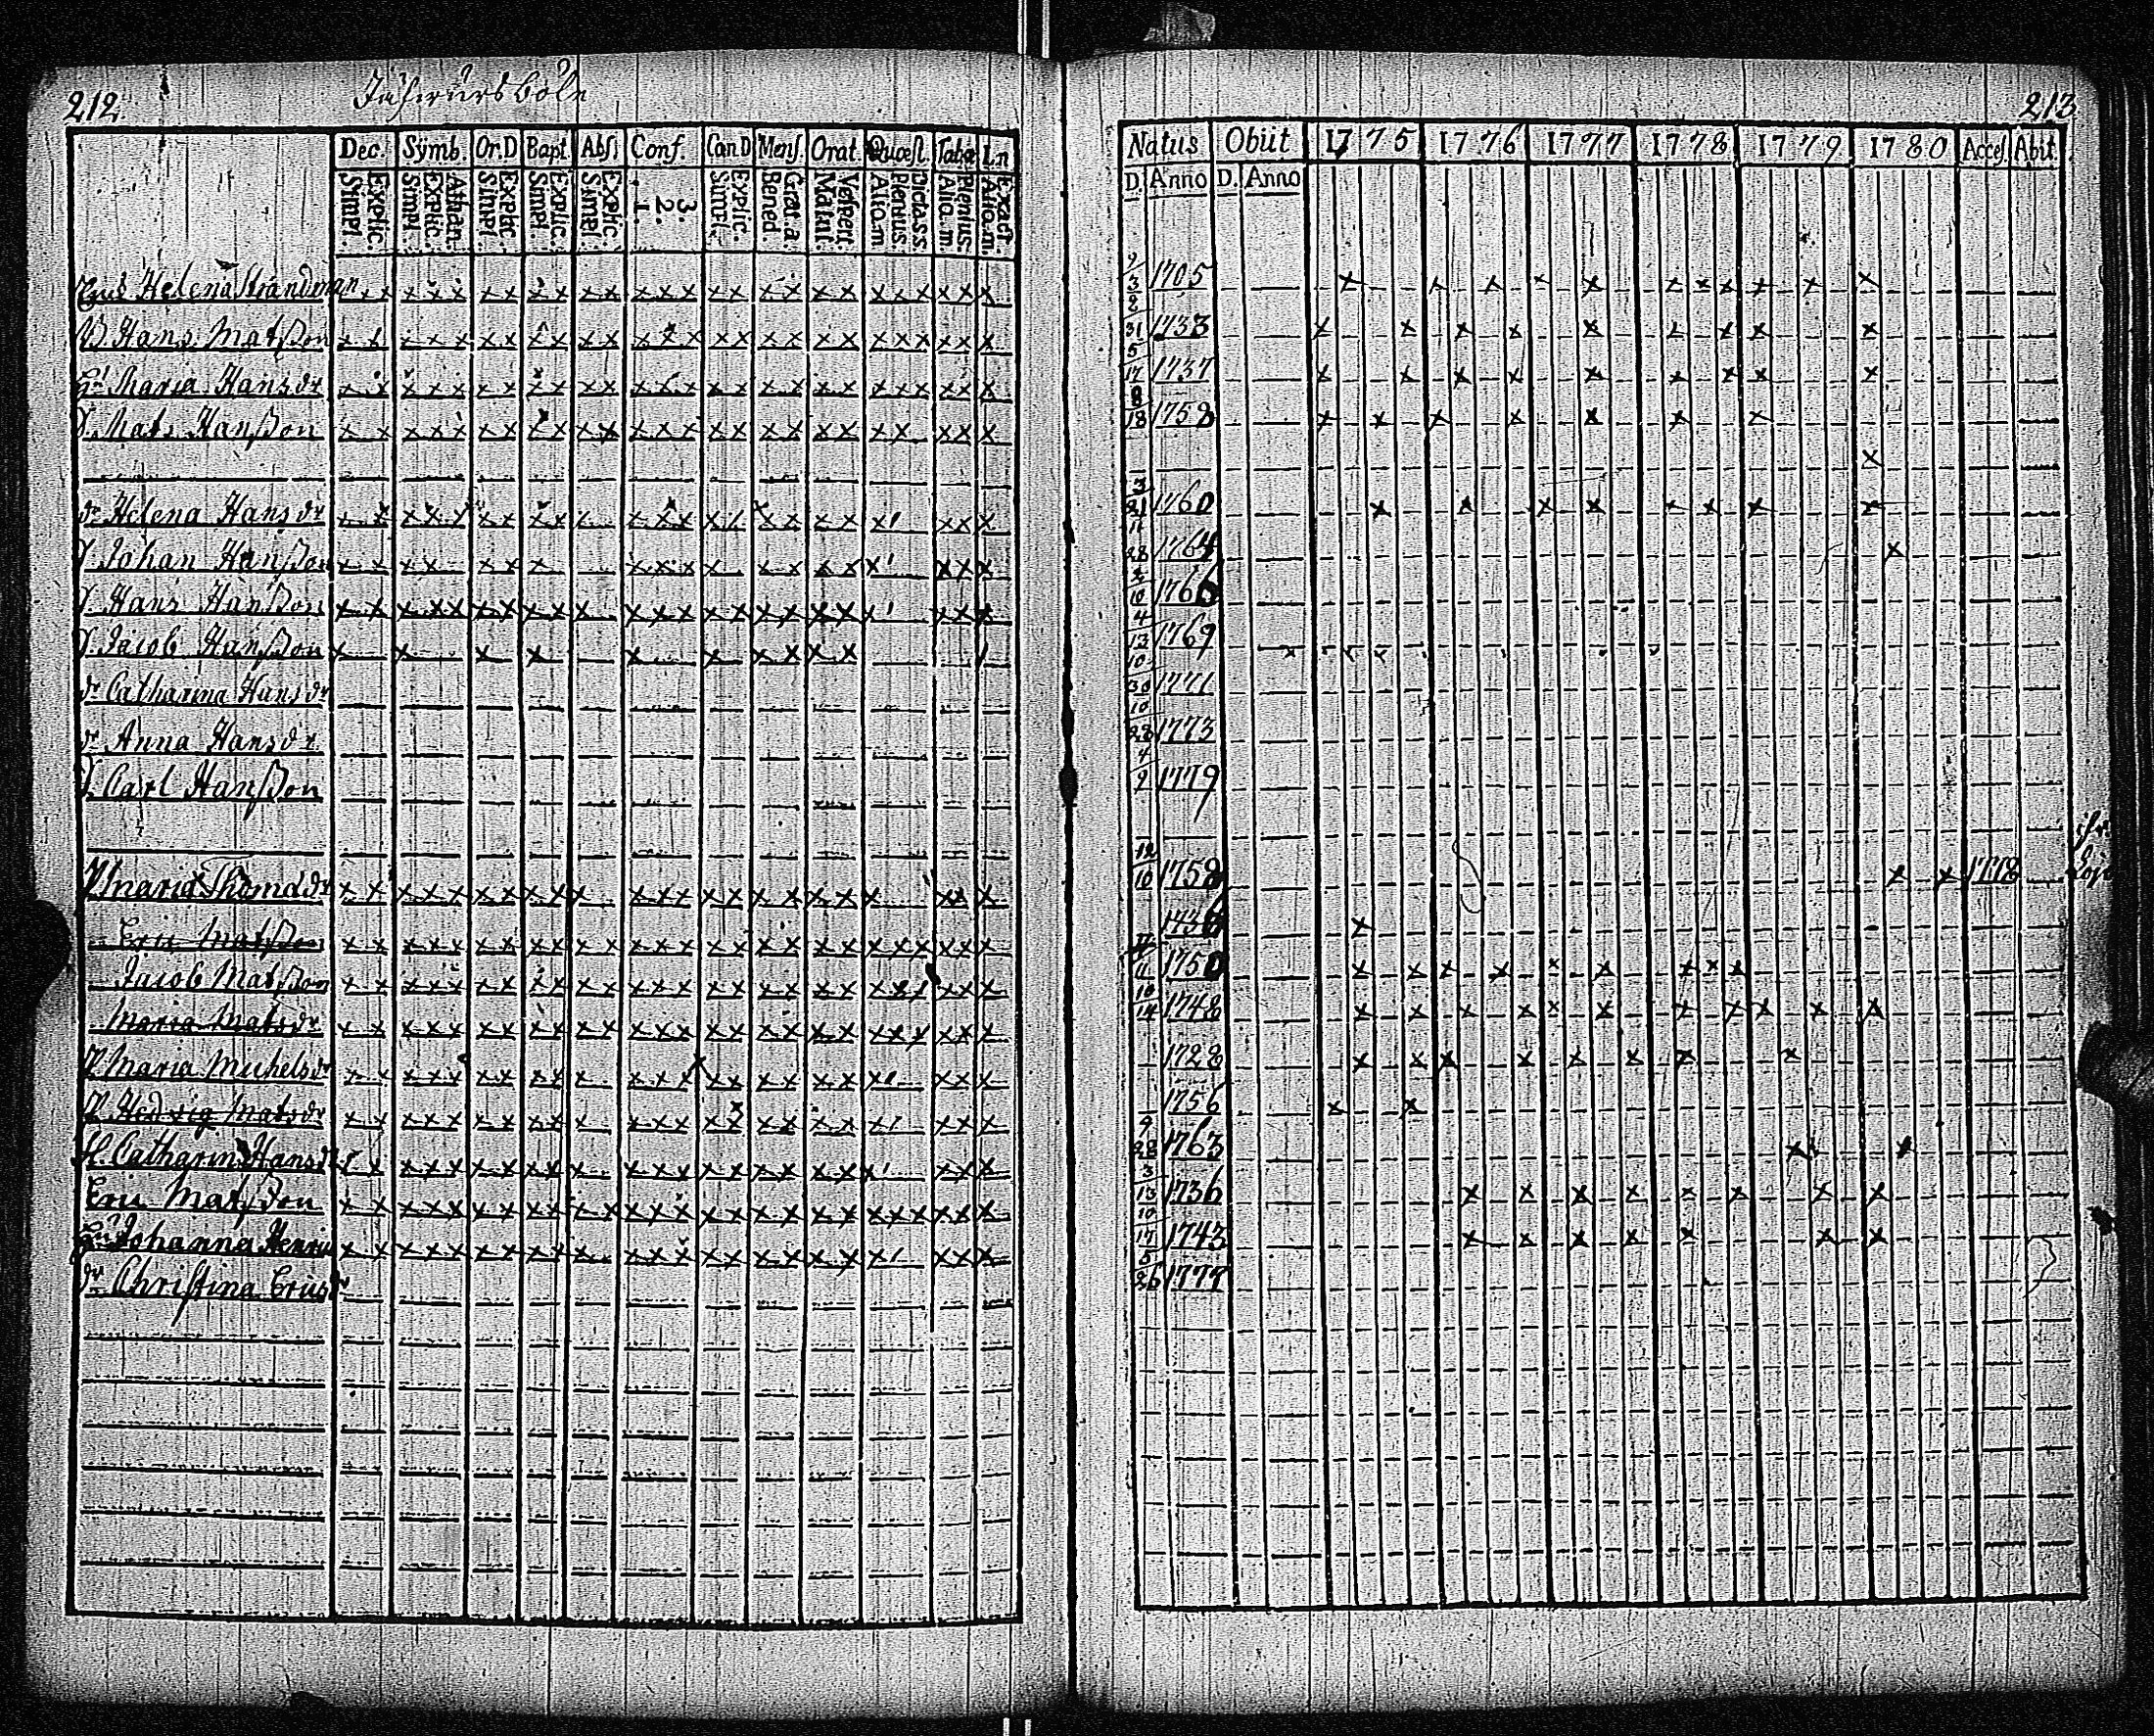 212.
Dec. Symb. Or.D Bapt. Abs. Conf. Can D Mens. Orat. Quæst. Tabæ
Explic. Simpl. Athan. Explic. Simpl. Explic. Simpl. Explic. Simpl. Explic. Simpl. 3. 2. 1. Explic. Simpl. Grat. a. Bened. Vespert. Matut. Dicta s.s. Plenius. Alio. m. Plenius. Alio. m. Exact. Alio. m.
Helena Strandman
Hans Matsson
Maria Hansdr
Mats Hansson
dr Helena Hansdr
Johan Hansson
Hans Hansson
Jacob Hansson
dr Catharina Hansdr
dr Anna Hansdr
Carl Hansson
Maria Thomadr
Eric Matsson
Jacob Matsson
Maria Matsdr
Maria Michelsdr
Hedvig Matsdr
Catharin Hansdr
Eric Matsson
Johanna Henric
dr Christina Ericsdr
213
Natus Obiit 1775 1776 1777 1778 1779 1780 Acces. Abit.
D. Anno D. Anno
1705
31 1733
5 17 1737
8 18 1758
3 21 1760
11 28 1764
10 1766
4 13 1769
10 30 1771
10 28 1773
4 2 1779
12 10 1758 1778
1736
11 1750
10 14 1748
1728
1756
9 28 1763
3 13 1736
10 17 1743
5 26 1777